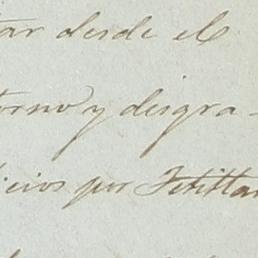 tar desde el
torno y desgra-
icios por Tetitlan